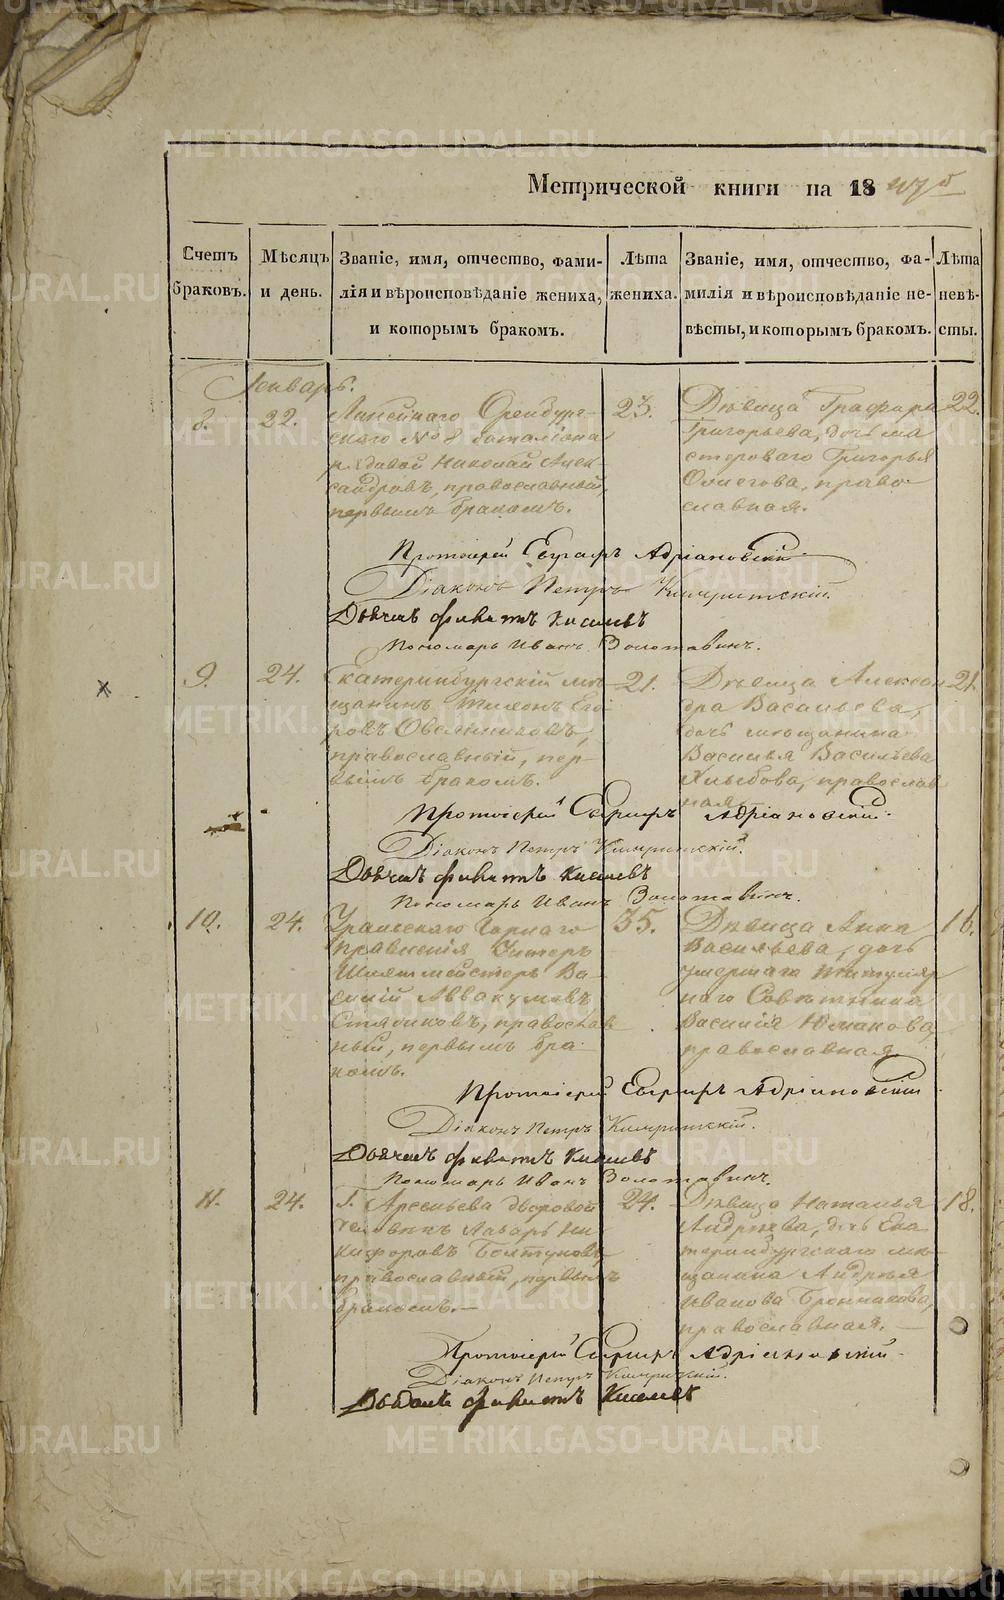 Метрической книги на 18
Счетъ браковъ.
Мѣсяцъ и день.
Званіе, имя, отчество, фами-
лія и вѣроисповѣданіе жениха,
и которымъ бракомъ.
Лѣта
жениха.
Званіе, имя, отчество, фа-
милія и вѣроисповѣданіе не-
вѣсты, и которымъ бракомъ.
Лѣта
невѣ-
сты.
Январь.
8.
22.
Линейнаго Оренбург-
скаго № 8 баталіона
рядовой Николай Алек-
сандровъ, православный,
первымъ бракомъ.
23.
Дѣвица
Григорьева, дочь ма
стероваго Григорья
право-
славная.
22.
Протоіерей Евграфъ Адріановскій
Діаконъ Петръ
Дьячекъ Киселевъ
Пономарь Иванъ Золотавинъ.
9.
24.
Екатеринбургскій мѣ
щанинъ Его
ровъ
православный, пер-
вымъ бракомъ.
21.
Дѣвица Алексан
дра Васильева,
дочь мѣщанина
Василья Васильева
православ
ная
21.
Протоіерей Евграфъ Адріановскій.
Діаконъ Петръ
Дьячекъ Киселевъ
Пономарь Иванъ Золотавинъ.
10.
24.
Уральскаго Горнаго
Правленія Унтеръ
Шихтмейстеръ Ва-
силій Аввакумовъ
православ
ный, первымъ бра-
комъ.
35.
Дѣвица Анна
Васильева, дочь
умершаго Титуляр
наго Совѣтника
Василія Юмакова,
православная.
16.
Протоіерей Евграфъ Адріановскій
Діаконъ Петръ
Дьячекъ Киселевъ
Пономарь Иванъ Золотавинъ.
11.
24.
Г. дворовой
человѣкъ Лазарь Ни
кифоровъ Болтуновъ
православный, первымъ
бракомъ.—
24.
Дѣвица Наталья
Андреева, дочь Ека
теринбургскаго мѣ-
щанина Андрея
Иванова
православная.—
18.
Протоіерей Евграфъ Адріановскій
Діаконъ Петръ
Киселевъ
METRIKI.GASO-URAL.RU